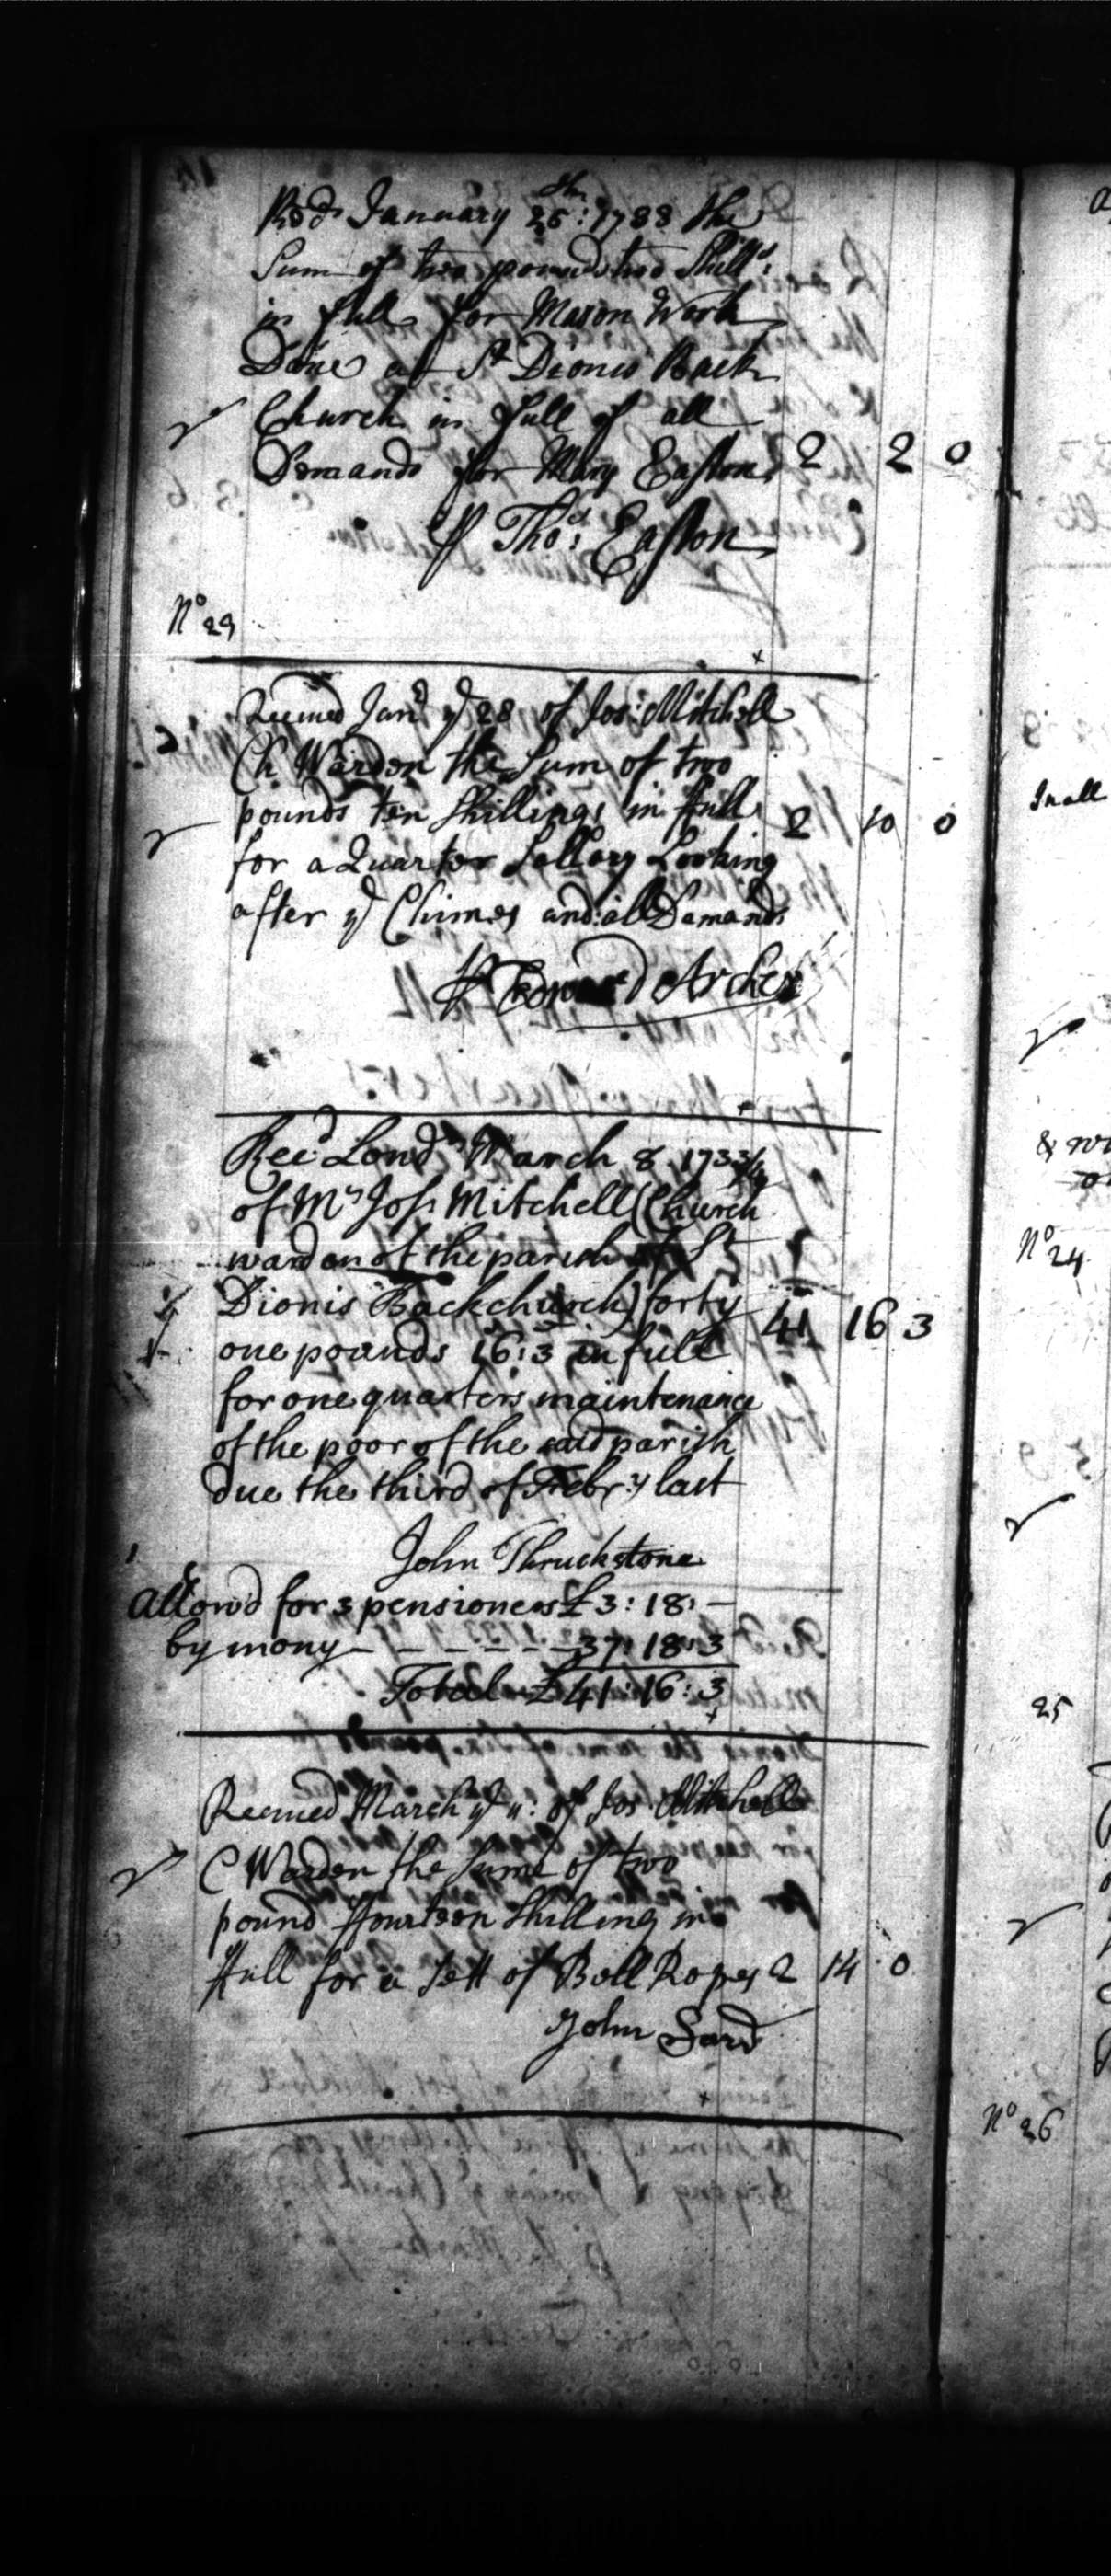 Recd January 25th: 1733 the
Sum of two pound two Shills:
in full for Mason Work
Done at St Dionis Back
Church in full of all
Demands for Mary Easton 2 2 0
P Thos: Easton
No 29
Receued Jany ye 28 of Jos: Mitchell
Ch Warden the Sum of two
pounds ten Shillings in full 2 10 0
for a Quarter Sallary Looking
after ye Chimes and all Demands
P Edward Archer
Recd Lond March 8 1733/4
of Mr Jos: Mitchell (Church
warden of the parish of St
Dionis Backchurch) forty 41 16 3
one pounds 16:3 in full
for one quarters maintenance
of the poor of the said parish
due the third of Febry last
John Thruckstone
Allow'd for 3 pensioners £3:18:–
by mony – – – – – 37:18:3
Total £41:16:3
Receued March ye 11: of Jos Mitchell
C Warden the Sume of two
pound ffourteen Shilling in
ffull for a Sett of Bell Ropes 2 14 0
John Sard
In all
& wi
No 24
25
No 26